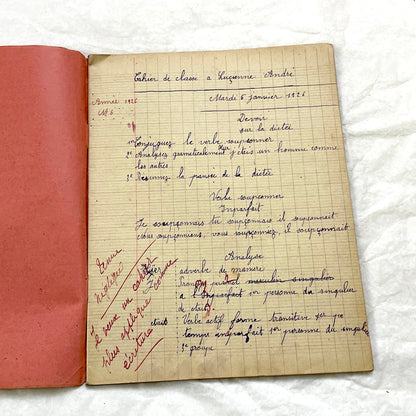 Cahier de classe a Lucienne André
Année 1926
Mardi 5 janvier 1926
Devoir
sur la dictée
1° Conjuguez le verbe soupçonner
2° Analysez grammaticalement j'étais un homme comme
les autres
3° Résumez la pensée de la dictée
Verbe soupçonner
Imparfait
Je soupçonnais tu soupçonnais il soupçonnait
nous soupçonnions, vous soupçonniez, il soupçonnait
Analyse
adverbe de manière
masculin singulier
a l'Imparfait 1er personne du singulier
de etait
etait Verbe actif forme transitive
temps imparfait 1er personne du singulier
3e groupe
négligé
Je veux un cahier
plus appliqué comme
écriture